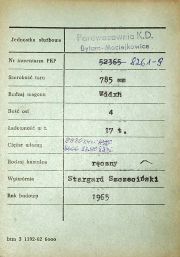 Jednostka służbowa
Parowozownia K.D.
Bytom-Maciejkowice
Nr inwentarza PKP 52365 8261-8
Szerokość toru 785 mm
Rodzaj wagonu
Ilość osi 4
Ładowność w t. 17 t.
Ciężar własny
Rodzaj hamulca ręczny
Wytwórnia Stargard Szczeciński
Rok budowy 1965